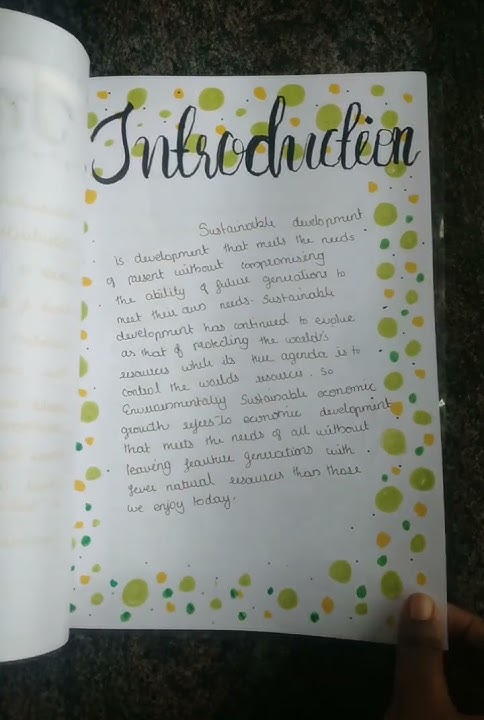 Introduction
Sustainable development
is development that meets the needs
of present without compromising
the ability of future generations to
meet their own needs. Sustainable
development has continued to evolve
as that of protecting the world's
resources while its true agenda is to
control the worlds resources. So
Environmentally Sustainable economic
growth refers to economic development
that meets the needs of all without
leaving feauture generations with
fever natural resources than those
we enjoy today.